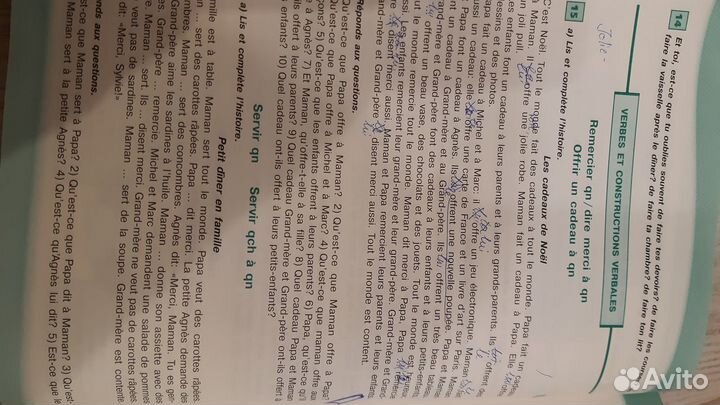 14 Et toi, est-ce que tu oublies souvent de faire tes devoirs? de faire les courses
faire la vaisselle après le dîner? de faire ta chambre? de faire ton lit?
VERBES ET CONSTRUCTIONS VERBALES
Remercier qn/dire merci à qn
Offrir un cadeau à qn
15 a) Lis et complète l'histoire.
Les cadeaux de Noël
C'est Noël. Tout le monde fait des cadeaux à tout le monde. Papa fait un
à Maman. Il offre une jolie robe. Maman fait un cadeau à Papa. Elle
un joli pull.
Ces enfants font un cadeau à leurs parents et à leurs grands-parents. Ils offrent
dessins et des photos.
Papa fait un cadeau à Michel et à Marc: il offre un jeu électronique. Maman
aussi un cadeau: elle offre une carte de France et un livre d'art sur Paris. Maman
Papa font un cadeau à Agnès. Ils offrent une nouvelle poupée. Papa et Maman
un cadeau à Grand-mère et au Grand-père. Ils offrent un très beau tableau
Grand-mère et Grand-père font des cadeaux à leurs enfants et à leurs petits-enfants
offrent un beau vase, des chocolats et des jouets. Tout le monde est
Tout le monde remercie tout le monde. Maman dit merci à Papa. Papa remercie
Les enfants remercient leur grand-mère et leur grand-père. Grand-mère et Grand-
disent merci aussi. Maman et Papa remercient leurs parents et leurs enfants
Grand-mère et Grand-père disent merci aussi. Tout le monde est content.
Réponds aux questions.
Qu'est-ce que Papa offre à Maman? 2) Qu'est-ce que Maman offre à Papa?
Qu'est-ce que Papa offre à Michel et à Marc? 4) Qu'est-ce que maman offre aux
5) Qu'est-ce que les enfants offrent à leurs parents? 6) Papa, qu'est-ce qu'il
Agnès? 7) Et Maman, qu'offre-t-elle à sa fille? 8) Quel cadeau Papa et Maman
offrent à leurs parents? 9) Quel cadeau Grand-mère et Grand-père ont-ils offert à
10) Quel cadeau ont-ils offert à leurs petits-enfants?
Servir qn Servir qch à qn
a) Lis et complète l'histoire.
Petit dîner en famille
famille est à table. Maman sert tout le monde. Papa veut des carottes râpées
... sert des carottes râpées. Papa ... dit merci. La petite Agnès demande des
Maman ... sert des concombres. Agnès dit: «Merci, Maman. Tu es gen
Grand-père aime les sardines à l'huile. Maman ... donne son assiette avec des
Grand-père ... remercie. Michel et Marc demandent une salade de pommes
Maman ... sert. Ils ... disent merci. Grand-mère ne veut pas de carottes râpées
veut pas de sardines. Maman ... sert de la soupe. Grand-mère est contente
dit: «Merci, Sylvie!»
aux questions.
est-ce que Maman sert à Papa? 2) Qu'est-ce que Papa dit à Maman? 3) Qu'est-
Maman sert à la petite Agnès? 4) Qu'est-ce qu'Agnès lui dit? 5) Est-ce que
Avito